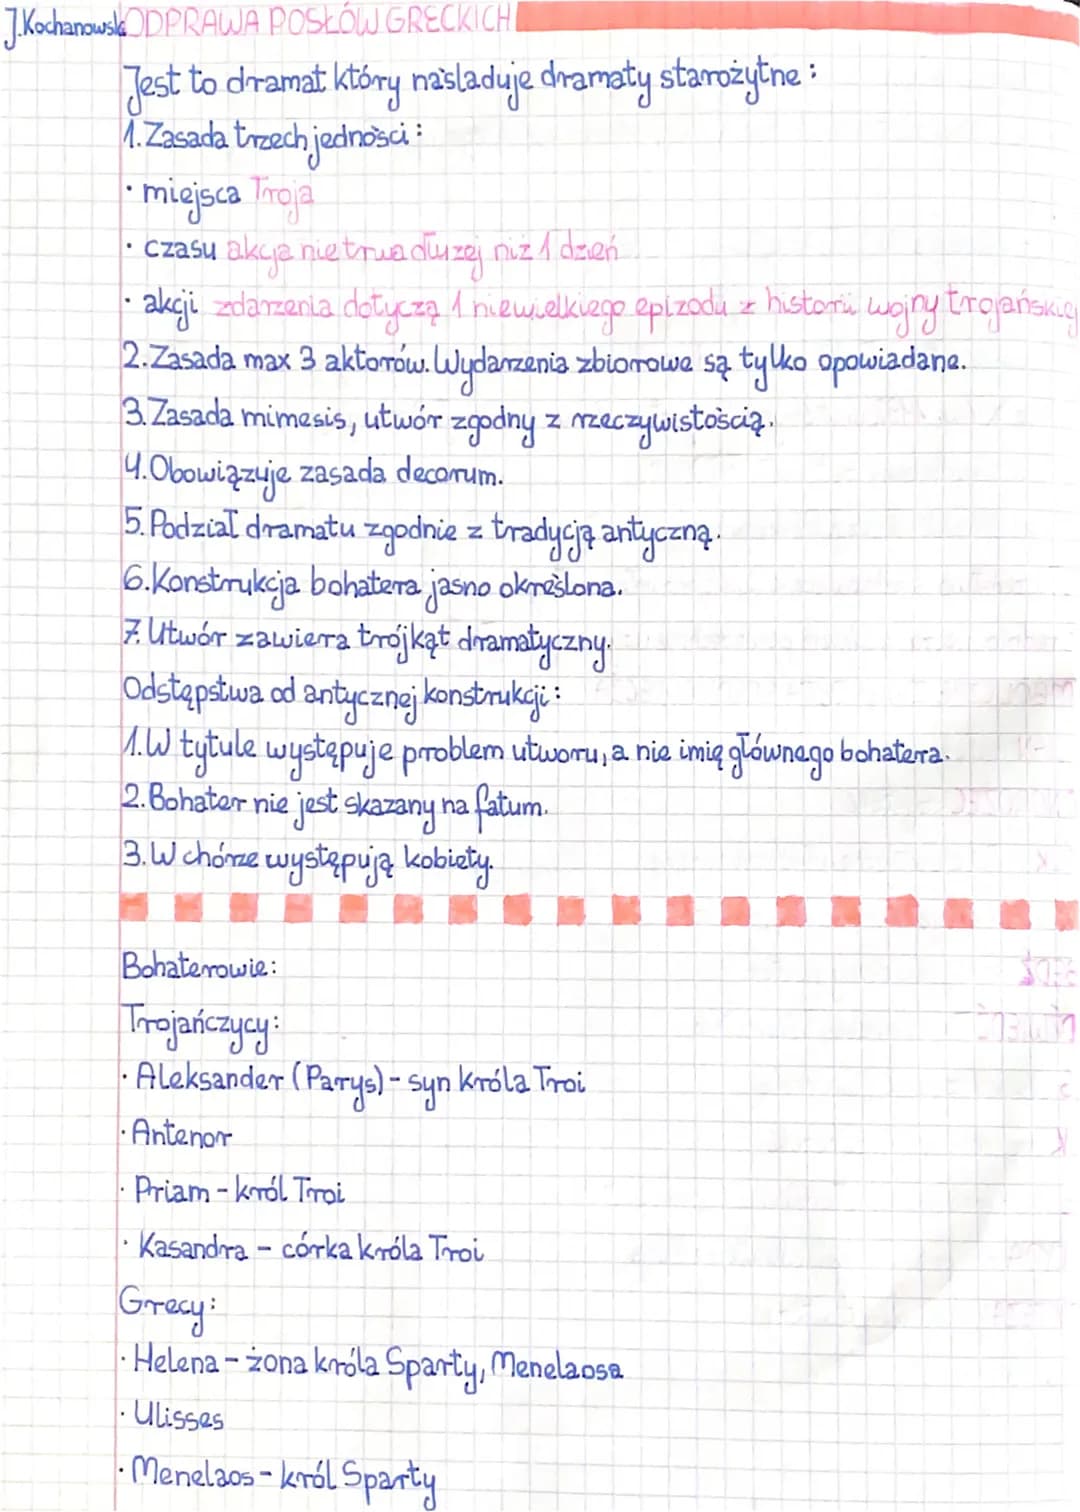 J.Kochanowski ODPRAWA POSŁÓW GRECKICH
Jest to dramat który naśladuje dramaty starożytne:
1. Zasada trzech jedności:
· miejsca Troja
· czasu akcja nie trwa dłużej niż 1 dzień
· akcji zdarzenia dotyczą 1 niewielkiego epizodu z historii wojny trojańskiej
2. Zasada max 3 aktorów. Wydarzenia zbiorowe są tylko opowiadane.
3. Zasada mimesis, utwór zgodny z rzeczywistością.
4. Obowiązuje zasada decorum.
5. Podział dramatu zgodnie z tradycją antyczną.
6. Konstrukcja bohatera jasno określona.
7. Utwór zawiera trójkąt dramatyczny.
Odstępstwa od antycznej konstrukcji:
1. W tytule występuje problem utworu, a nie imię głównego bohatera.
2. Bohater nie jest skazany na fatum.
3. W chórze występują kobiety.
Bohaterowie:
Trojańczycy:
· Aleksander (Parys) - syn króla Troi
· Antenor
· Priam - król Troi
· Kasandra - córka króla Troi
Grecy:
· Helena - żona króla Sparty, Menelaosa
· Ulisses
· Menelaos - król Sparty